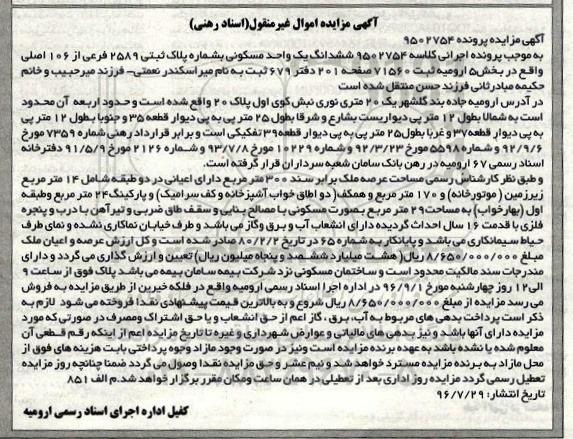 آگهی مزایده اموال غیر منقول(اسناد رهنی)
آگهی مزایده پرونده ۹۵۰۲۷۵۴
به موجب پرونده اجرائی کلاسه ۹۵۰۲۷۵۴ ششدانگ یک واحد مسکونی بشماره پلاک ثبتی ۲۵۸۹ فرعی از ۱۰۶ اصلی
واقع در بخش۵ ارومیه ثبت ۷۱۵۶۰ صفحه ۲۰۱ دفتر ۶۷۹ ثبت به نام میراسکندر نعمتی- فرزند میرحبیب و خانم
حکیمه صادرثانی فرزند حسن منتقل شده است
در آدرس ارومیه جاده بند گلشهر یک ۲۰ متری نوری نبش کوی اول پلاک ۲۰ واقع شده است و حدود اربعه آن محدود
است به شمالا بطول ۱۲ متر پی دیواریست بشارع و شرقا بطول ۲۵ متر پی به پی دیوار قطعه ۳۵ و جنوبا بطول ۱۲ متر پی
به پی دیوار قطعه۳۷ و غربا بطول۲۵ متر پی به پی دیوار قطعه۳۹ تفکیکی است و برابر قرارداد رهنی شماره ۷۳۵۹ مورخ
۹۲/۹/۶ و شماره ۵۵۹۸ مورخ ۹۲/۳/۲۳ و شماره ۱۰۲۲۹ مورخ ۹۳/۷/۸ و شماره ۲۱۲۶ مورخ ۹۱/۵/۹ دفترخانه
اسناد رسمی ۶۷ ارومیه در رهن بانک سامان شعبه سرداران قرار گرفته است.
و طبق نظر کارشناس رسمی مساحت عرصه ملک برابر سند ۳۰۰ متر مربع دارای اعیانی در دو طبقه شامل ۱۴ متر مربع
زیرزمین ( موتورخانه) و ۱۷۰ متر مربع و همکف ( دو اطاق خواب آشپزخانه و کف سرامیک) و پارکینگ۲۴ متر مربع وطبقه
اول (بهارخواب) به مساحت۲۹ متر مربع بصورت مسکونی با مصالح بنایی و سقف طاق ضربی و تیر آهن با درب و پنجره
فلزی با قدمت ۱۶ سال احداث گردیده دارای انشعاب آب و برق وگاز می باشد و طرف خیابان نماکاری نشده و نمای طرف
حیاط سیمانکاری می باشد و پایانکار به شماره ۶۵ در تاریخ ۸۰/۲/۲ صادر شده است و کل ارزش عرصه و اعیان ملک
مبلغ ۸/۶۵۰/۰۰۰/۰۰۰ ریال( هشت میلیارد ششصد و پنجاه میلیون ریال) تعیین و ارزش گذاری می گردد و دارای
مندرجات سند مالکیت محدود است و ساختمان مسکونی نزد شرکت بیمه سامان بیمه می باشد پلاک فوق از ساعت ۹
الی۱۲ روز چهارشنبه مورخ ۹۶/۹/۱ در اداره اجرا اسناد رسمی ارومیه واقع در فلکه خیرین از طریق مزایده به فروش
می رسد مزایده از مبلغ ۸/۶۵۰/۰۰۰/۰۰۰ ریال شروع و به بالاترین قیمت پیشنهادی نقدا فروخته می شود لازم به
ذکر است پرداخت بدهی های مربوط به آب، برق ، گاز اعم از حق انشعاب و یا حق اشتراک ومصرف در صورتی که مورد
مزایده دارای آنها باشد و نیز بدهی های مالیاتی و عوارض شهرداری و غیره تا تاریخ مزایده اعم از اینکه رقم قطعی آن
معلوم شده یا نشده باشد به عهده برنده مزایده است ونیز در صورت وجود مازاد وجوه پرداختی بابت هزینه های فوق از
محل مازاد به برنده مزایده مسترد خواهد شد و نیم عشر و حق مزایده نقدا وصول می گردد ضمنا چنانچه روز مزایده
تعطیل رسمی گردد مزایده روز اداری بعد از تعطیلی در همان ساعت ومکان مقرر برگزار خواهد شد.م الف ۸۵۱
تاریخ انتشار: ۹۶/۷/۲۹
کفیل اداره اجرای اسناد رسمی ارومیه